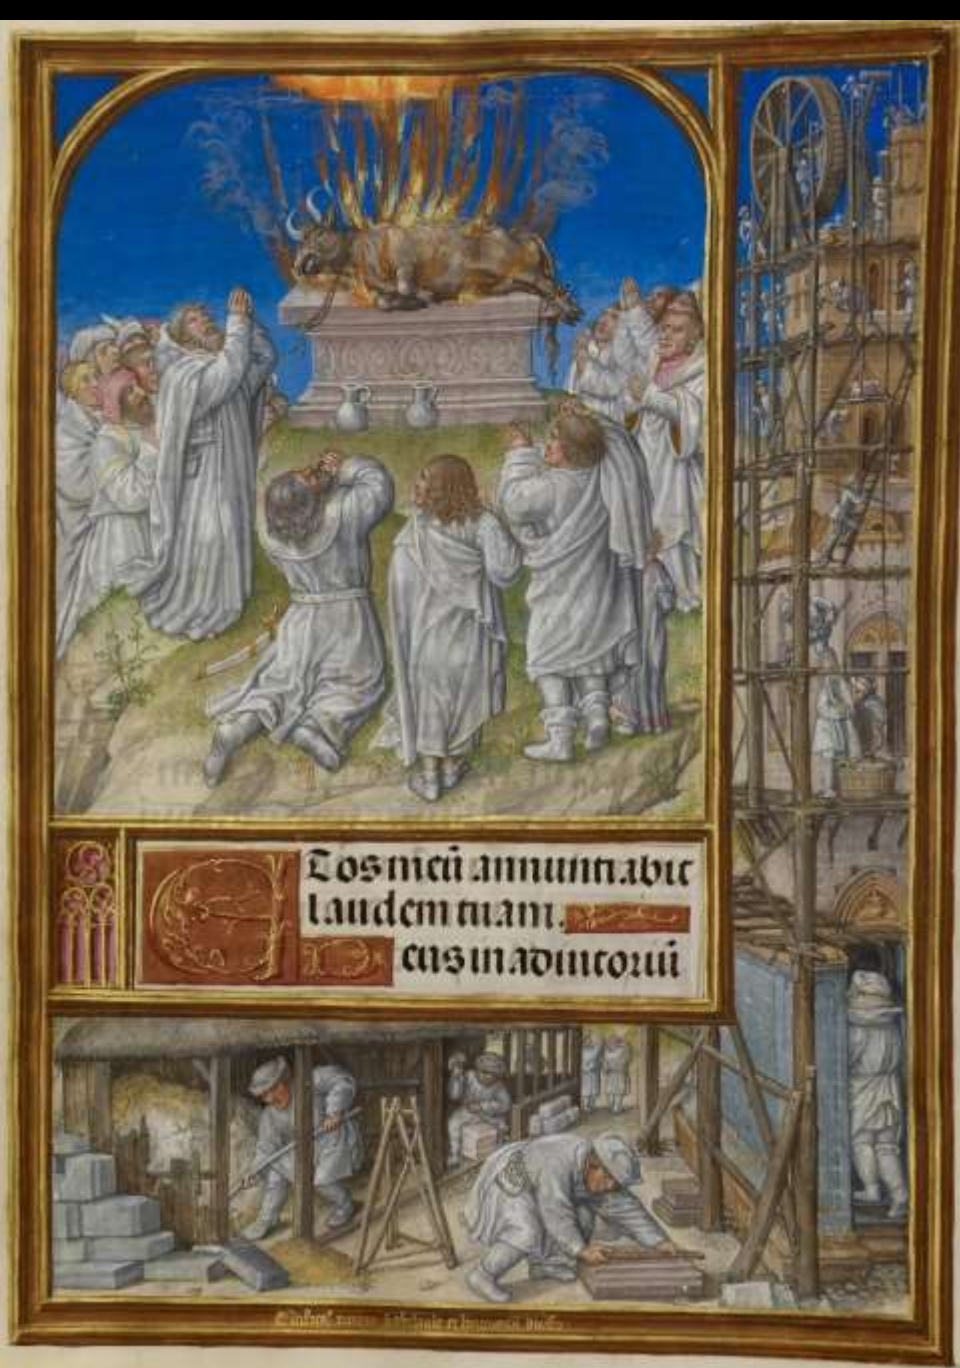 ET os meū annuntiabit
laudem tuam.
Deus in adiutoriū
et